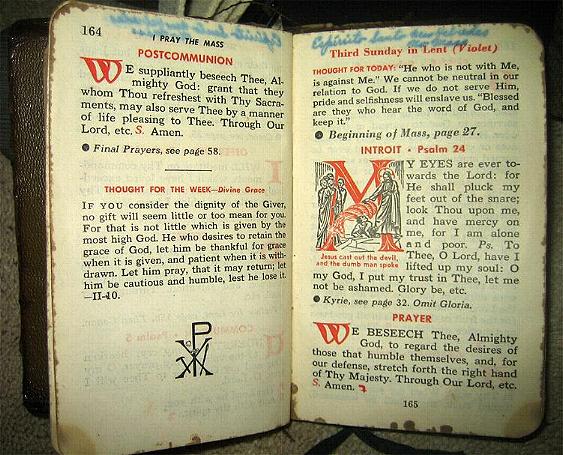 164
I PRAY THE MASS
POSTCOMMUNION
WE suppliantly beseech Thee, Al-
mighty God: grant that they
whom Thou refreshest with Thy Sacra-
ments, may also serve Thee by a manner
of life pleasing to Thee. Through Our
Lord, etc. S. Amen.
● Final Prayers, see page 58.
THOUGHT FOR THE WEEK—Divine Grace
IF YOU consider the dignity of the Giver,
no gift will seem little or too mean for you.
For that is not little which is given by the
most high God. He who desires to retain the
grace of God, let him be thankful for grace
when it is given, and patient when it is with-
drawn. Let him pray, that it may return; let
him be cautious and humble, lest he lose it.
—II-10.
Espírito Santo
Third Sunday in Lent (Violet)
THOUGHT FOR TODAY: "He who is not with Me,
is against Me." We cannot be neutral in our
relation to God. If we do not serve Him,
pride and selfishness will enslave us. "Blessed
are they who hear the word of God, and
keep it."
● Beginning of Mass, page 27.
INTROIT • Psalm 24
MY EYES are ever to-
wards the Lord: for
He shall pluck my
feet out of the snare;
look Thou upon me,
and have mercy on
me, for I am alone
and poor. Ps. To
Thee, O Lord, have I
lifted up my soul: O
Jesus cast out the devil,
and the dumb man spoke
my God, I put my trust in Thee, let me
not be ashamed. Glory be, etc.
● Kyrie, see page 32. Omit Gloria.
PRAYER
WE BESEECH Thee, Almighty
God, to regard the desires of
those that humble themselves, and, for
our defense, stretch forth the right hand
of Thy Majesty. Through Our Lord, etc.
S. Amen.
165